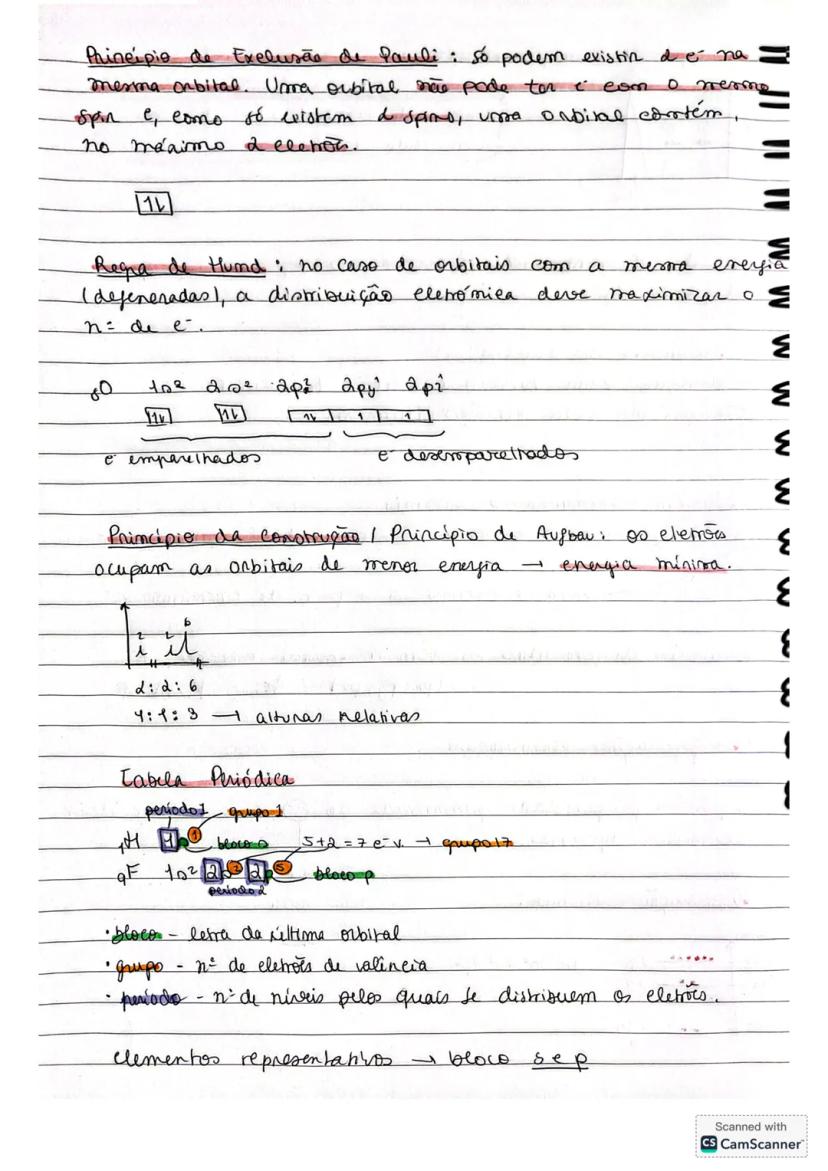 Princípio de Exclusão de Pauli : só podem existir 2 e⁻ na
mesma orbital. Uma orbital não pode ter e⁻ com o mesmo
spin e, como só existem 2 spins, uma orbital contém,
no máximo 2 eletrões.
1↓
Regra de Hund : no caso de orbitais com a mesma energia
(degeneradas), a distribuição eletrónica deve maximizar o
nº de e⁻.
₈O 1s² 2s² 2px² 2py¹ 2pz¹
1↓ 1↓ 1↓ 1 1
e⁻ emparelhados e⁻ desemparelhados
Princípio da construção / Princípio de Aufbau: os eletrões
ocupam as orbitais de menor energia → energia mínima.
2 2 6
2:2:6
1:1:3 → alturas relativas
Tabela Periódica
período 1 grupo 1
₁H 1s¹ bloco s 5+2=7 e⁻ v. → grupo 17
₉F 1s² 2s² 2p⁵ bloco p
período 2
• bloco - letra da última orbital
• grupo - nº de eletrões de valência
• período - nº de níveis pelos quais se distribuem os eletrões.
Elementos representativos → bloco s e p
Scanned with
CS CamScanner